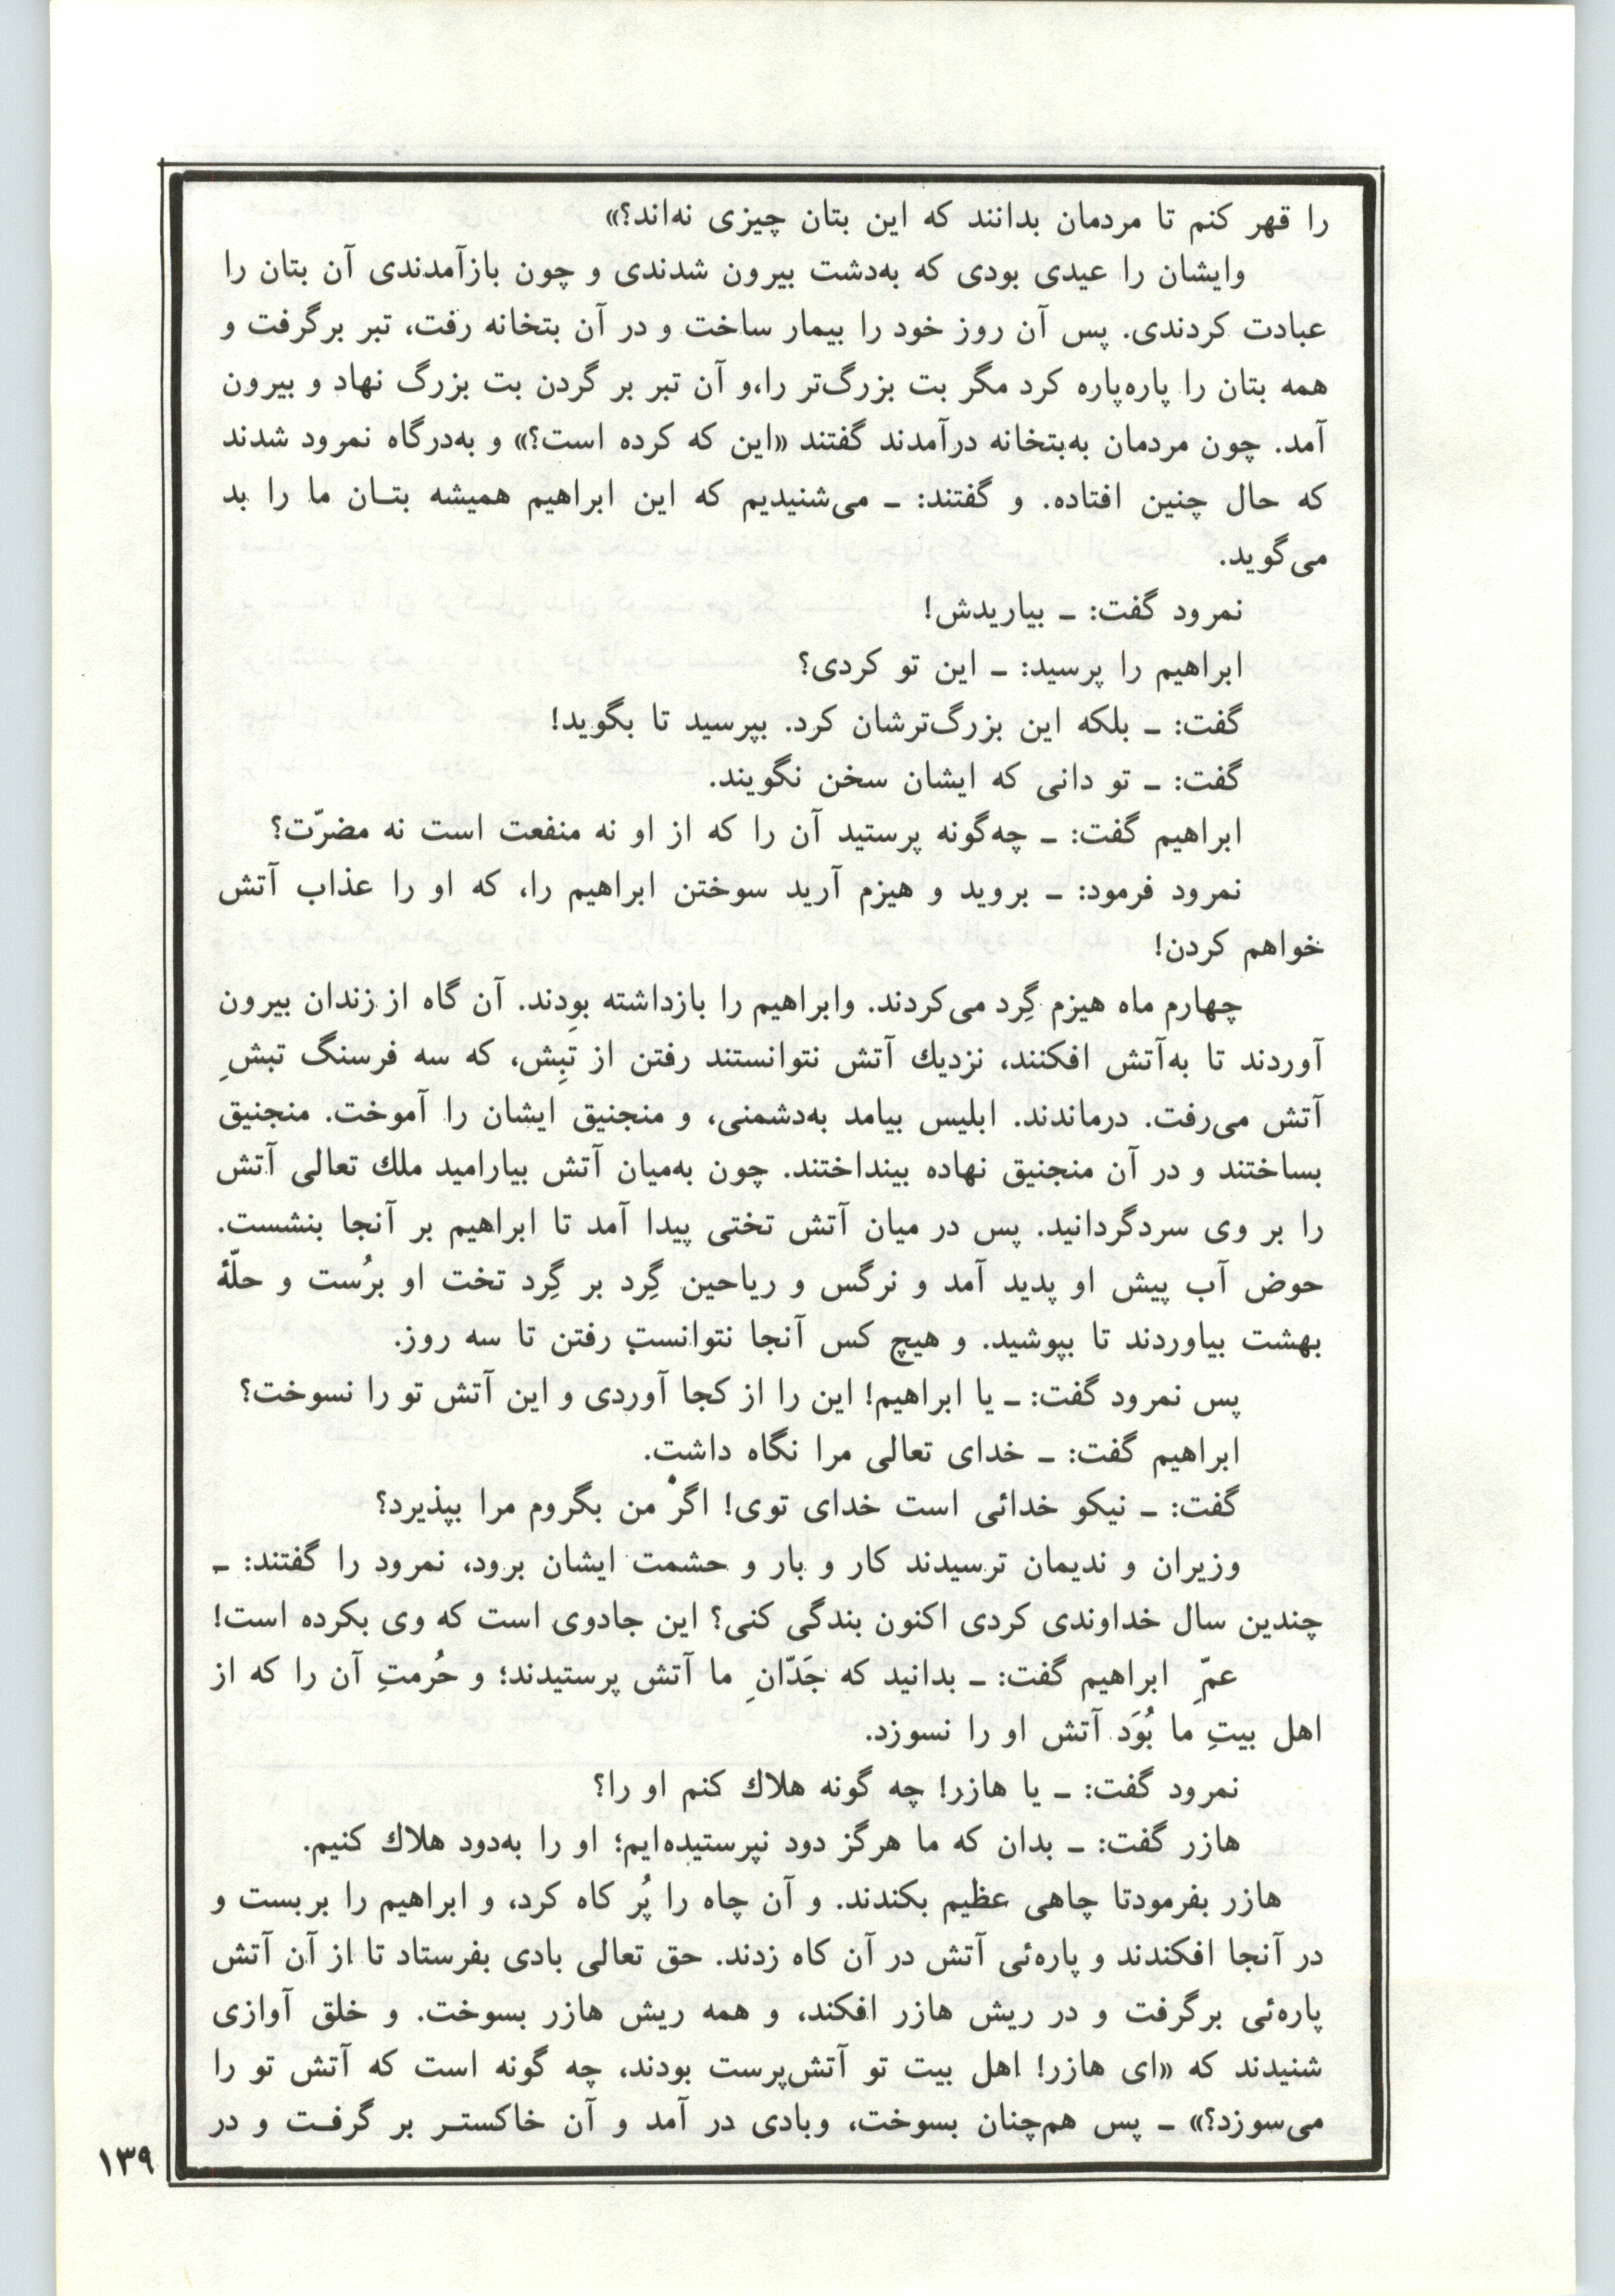 را قهر کنم تا مردمان بدانند که این بتان چیزی نه‌اند؟»
وایشان را عیدی بودی که به‌دشت بیرون شدندی و چون بازآمدندی آن بتان را
عبادت کردندی. پس آن روز خود را بیمار ساخت و در آن بتخانه رفت، تبر برگرفت و
همه بتان را پاره‌پاره کرد مگر بت بزرگ‌تر را،و آن تبر بر گردن بت بزرگ نهاد و بیرون
آمد. چون مردمان به‌بتخانه درآمدند گفتند «این که کرده است؟» و به‌درگاه نمرود شدند
که حال چنین افتاده. و گفتند: ـ می‌شنیدیم که این ابراهیم همیشه بتـان ما را بد
می‌گوید.
نمرود گفت: ـ بیاریدش!
ابراهیم را پرسید: ـ این تو کردی؟
گفت: ـ بلکه این بزرگ‌ترشان کرد. بپرسید تا بگوید!
گفت: ـ تو دانی که ایشان سخن نگویند.
ابراهیم گفت: ـ چه‌گونه پرستید آن را که از او نه منفعت است نه مضرّت؟
نمرود فرمود: ـ بروید و هیزم آرید سوختن ابراهیم را، که او را عذاب آتش
خواهم کردن!
چهارم ماه هیزم گِرد می‌کردند. وابراهیم را بازداشته بودند. آن گاه از زندان بیرون
آوردند تا به‌آتش افکنند، نزدیك آتش نتوانستند رفتن از تبِش، که سه فرسنگ تبشِ
آتش می‌رفت. درماندند. ابلیس بیامد به‌دشمنی، و منجنیق ایشان را آموخت. منجنیق
بساختند و در آن منجنیق نهاده بینداختند. چون به‌میان آتش بیارامید ملك تعالی آتش
را بر وی سردگردانید. پس در میان آتش تختی پیدا آمد تا ابراهیم بر آنجا بنشست.
حوض آب پیش او پدید آمد و نرگس و ریاحین گِرد بر گِرد تخت او برُست و حلّهٔ
بهشت بیاوردند تا بپوشید. و هیچ کس آنجا نتوانست رفتن تا سه روز.
پس نمرود گفت: ـ یا ابراهیم! این را از کجا آوردی و این آتش تو را نسوخت؟
ابراهیم گفت: ـ خدای تعالی مرا نگاه داشت.
گفت: ـ نیکو خدائی است خدای توی! اگرْ من بگروم مرا بپذیرد؟
وزیران و ندیمان ترسیدند کار و بار و حشمت ایشان برود، نمرود را گفتند: ـ
چندین سال خداوندی کردی اکنون بندگی کنی؟ این جادوی است که وی بکرده است!
عمِّ ابراهیم گفت: ـ بدانید که جَدّانِ ما آتش پرستیدند؛ و حُرمتِ آن را که از
اهل بیتِ ما بُوَد آتش او را نسوزد.
نمرود گفت: ـ یا هازر! چه گونه هلاك کنم او را؟
هازر گفت: ـ بدان که ما هرگز دود نپرستیده‌ایم؛ او را به‌دود هلاك کنیم.
هازر بفرمودتا چاهی عظیم بکندند. و آن چاه را پُر کاه کرد، و ابراهیم را بربست و
در آنجا افکندند و پاره‌ئی آتش در آن کاه زدند. حق تعالی بادی بفرستاد تا از آن آتش
پاره‌ئی برگرفت و در ریش هازر افکند، و همه ریش هازر بسوخت. و خلق آوازی
شنیدند که «ای هازر! اهل بیت تو آتش‌پرست بودند، چه گونه است که آتش تو را
می‌سوزد؟» ـ پس هم‌چنان بسوخت، وبادی در آمد و آن خاکستـر بر گرفـت و در
۱۳۹